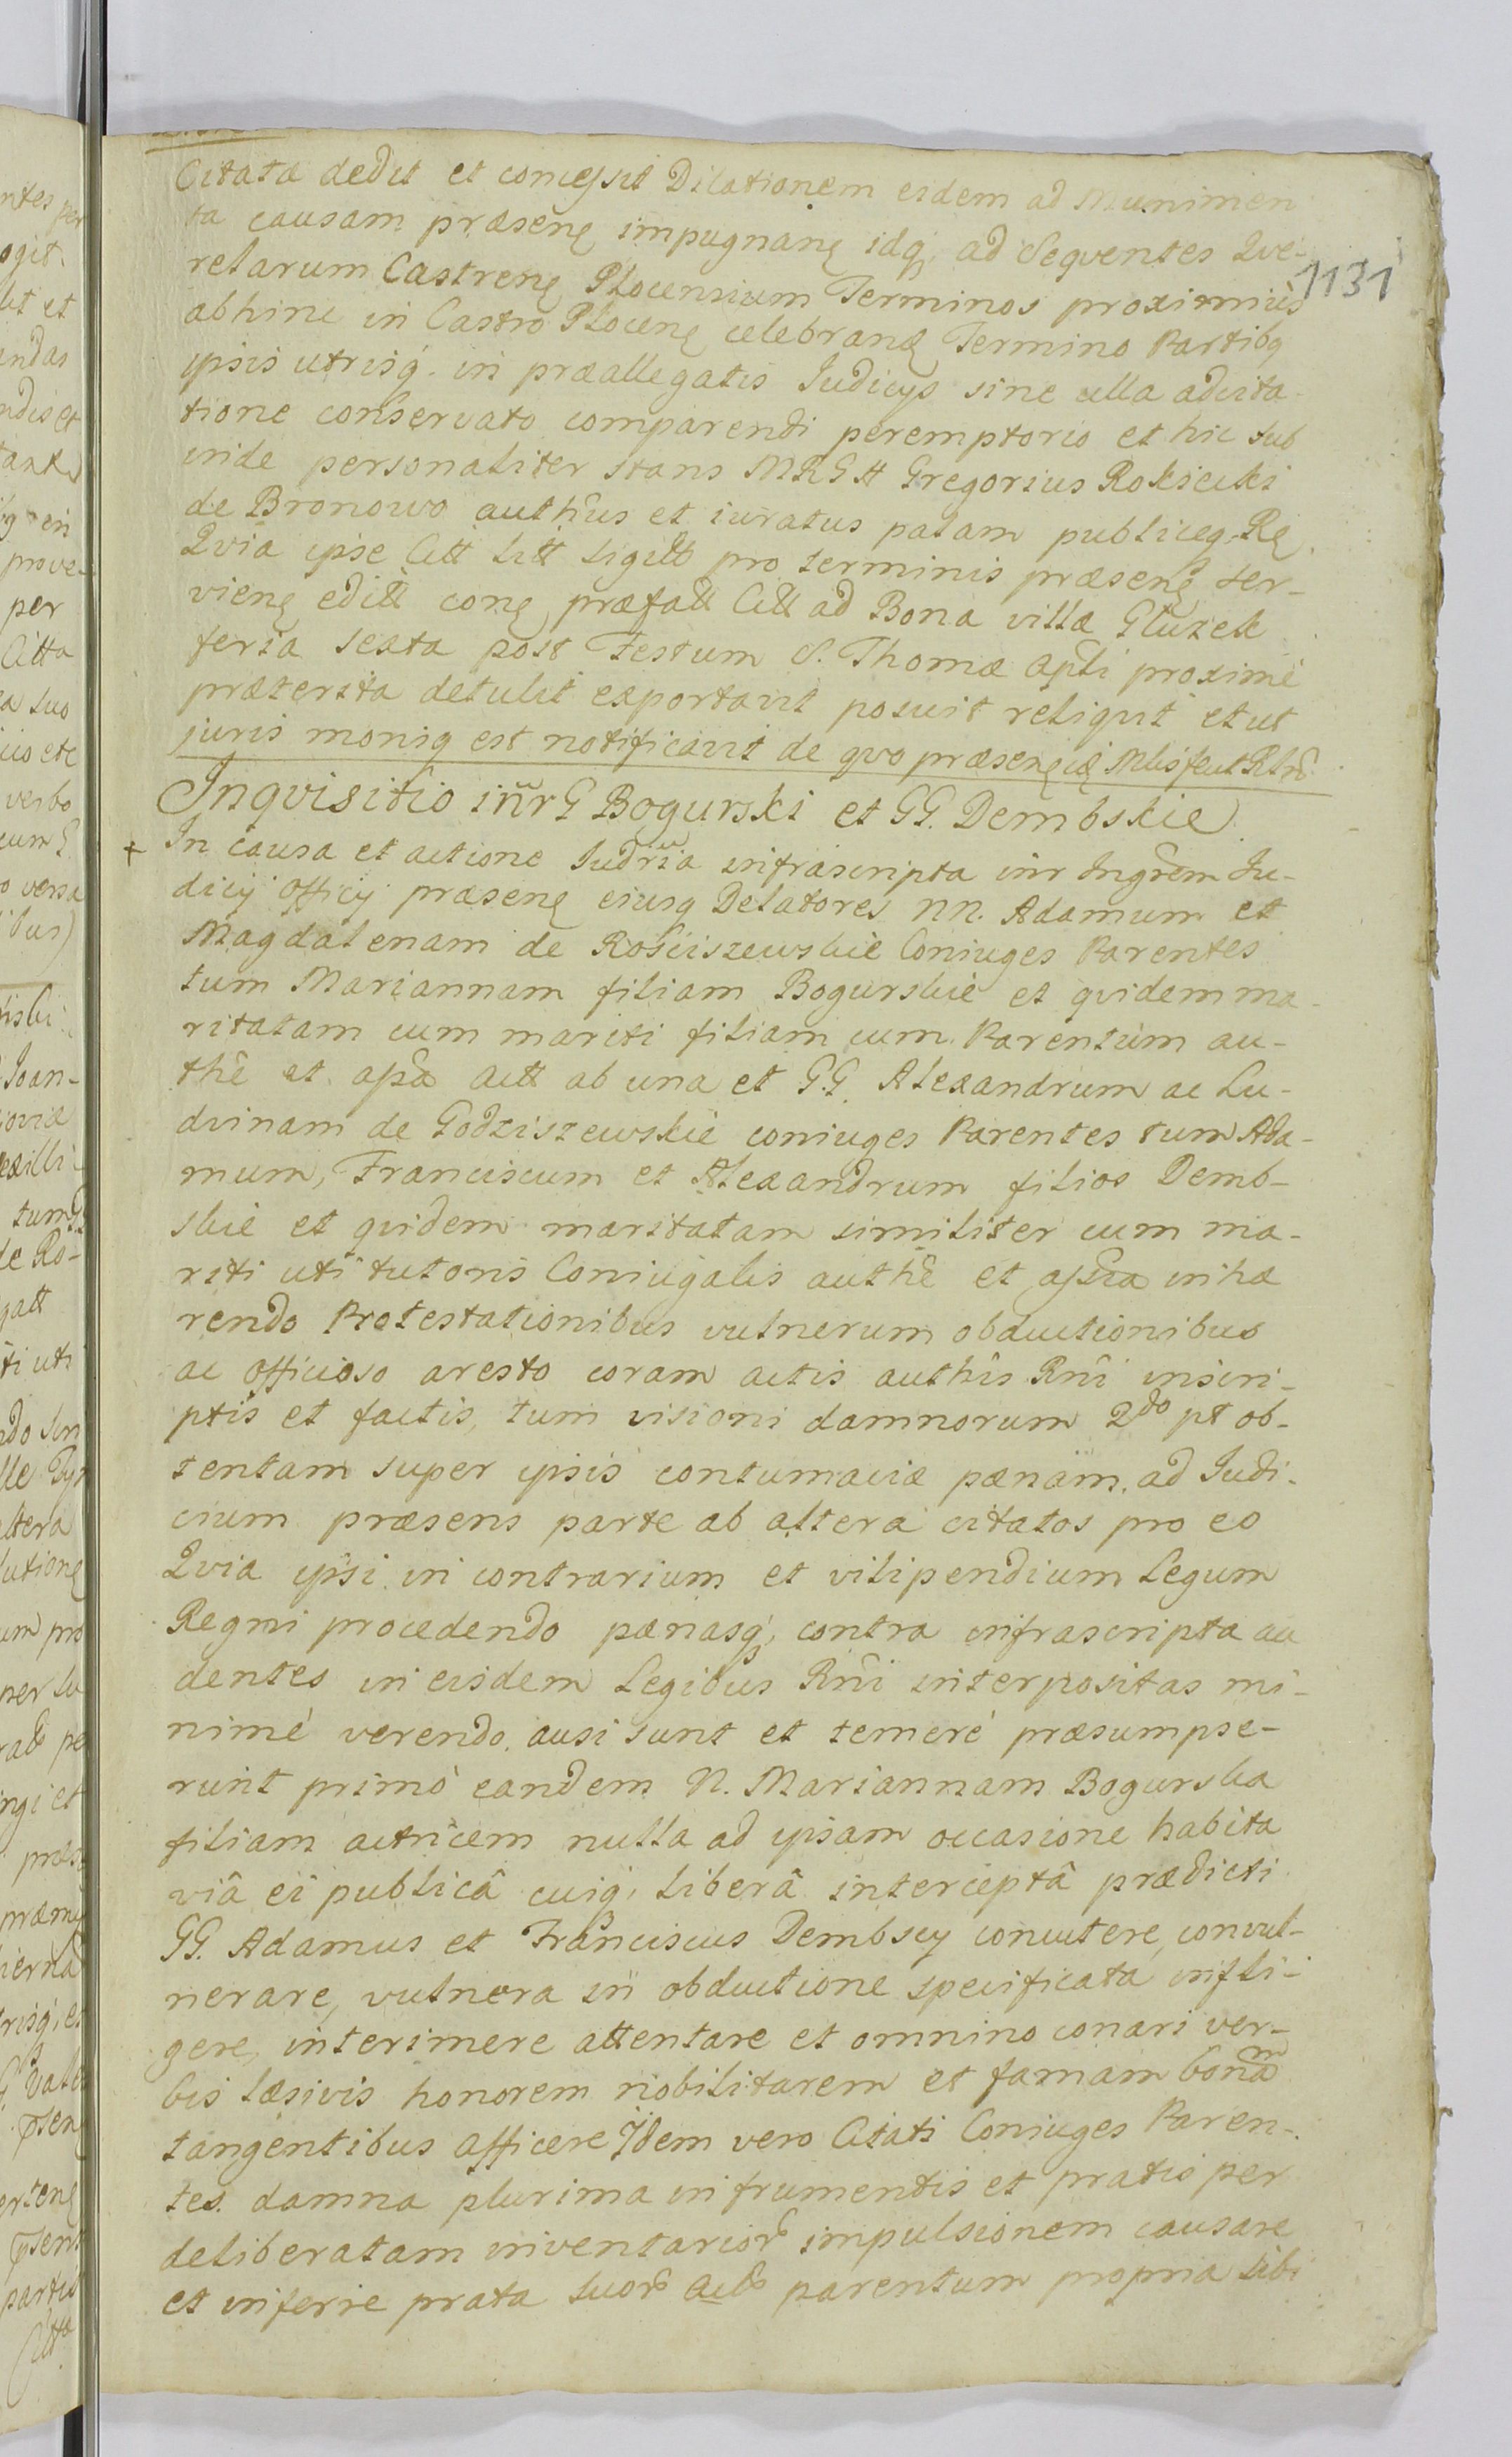 Citata dedit et concessit Dilationem eidem ad Munimen
ta causam præsenę impugnanę idq, ad Seqventes Qve-
relarum Castrenę Plocensium Terminos proximiùs
abhinc in Castro Plocenę celebranę Termino Partibq
ipsis utrisq. in præallegatis Iudicys sine ulla adcita-
tione conservato comparendi peremptorio et hic sub
inde personaliter stans MRGH Gregorius Rokicki
de Bronowo auth̃us et iuratus palam publiceq Rę
Qvia ipse Citt Litt Sigill pro terminis præsenę ter-
vienę editt conę præfatt Citt ad Bona villæ Gluzek
feria sexta post Festum S. Thomæ Apl̃i proximè
præterita detulit exportavit posuit reliqvit et ut
juris moriq est notificavit de qvo præsenę
Inqvisitio iñr G Bogurski et GG. Dembskie
+ In causa et actione Iudr̃ia infrascripta iñr Ingrẽm Iu-
dicij Officij præsenę eiusq Delatores NN. Adamum et
Magdalenam de Rościszewskie Coniuges Parentes
tum Mariannam filiam Bogurskie et qvidem ma-
ritatam cum mariti filiam cum Parentum au-
thẽ et aſsã Actt ab una et G.G. Alexandrum ac Lu-
dvinam de Godziszewskie coniuges Parentes tum Ada-
mum, Franciscum et Alexandrum filios Demb-
skie et qvidem maritatam similiter cum ma-
riti uti tutoris Coniugalis authẽ et aſsia inhæ
rendo Protestationibus vulnerum obductionibus
ac officioso aresto coram actis authĩs Rñi inscri-
ptis et factis, tum visioni damnorum 2do pt ob-
tentam super ipsis contumaciæ pænam ad Iudi-
cium præsens parte ab altera citatos pro eo
Qvia ipsi in contrarium et vilipendium Legum
Regni procedendo pænasq, contra infrascripta au
dentes in eisdem Legibus Rñi interpositas mi-
nimè verendo ausi sunt et temerè præsumpse-
runt primò eandem N. Mariannam Bogurska
filiam actricem nulla ad ipsam occasione habita
viâ ei publicâ cuiq, liberâ interceptâ prædicti
GG. Adamus et Franciscus Dembscy concutere, convul-
nerare, vulnera in obductione specificata infli-
gere, interimere attentare et omnino conari ver-
bis læsivis honorem nobilitarem et famam bonãm
tangentibus afficere Ijdem vero Citati Coniuges Paren-
tes damna plurima in frumentis et pratis per
deliberatam inventarior̃ impulsionem causare
et inferre prata suor̃ Act̃ parentum propria sibi
1131